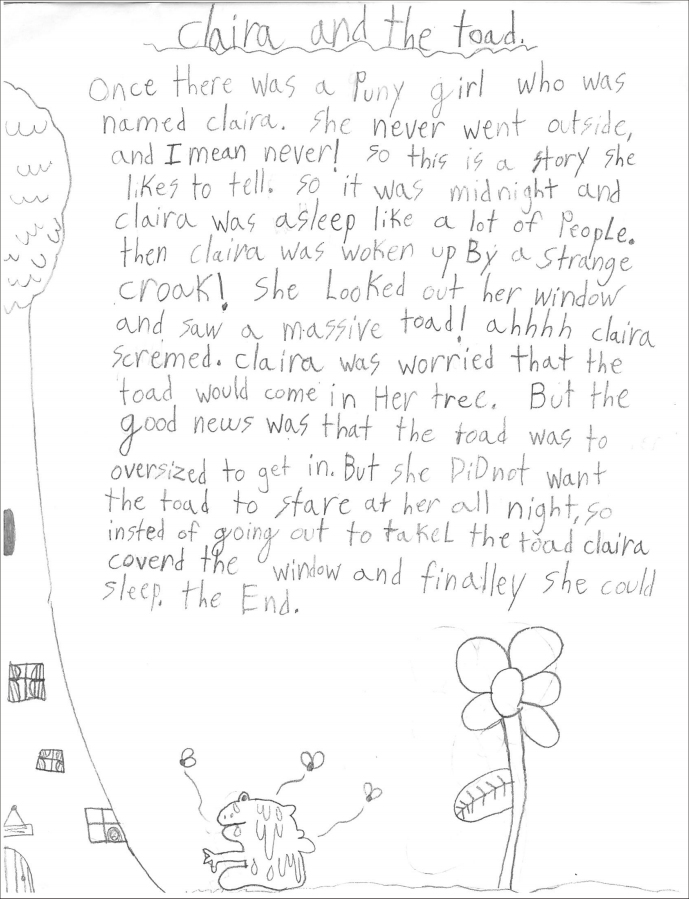 claira and the toad.
Once there was a Puny girl who was
named claira. she never went outside,
and I mean never! so this is a story she
likes to tell. so it was midnight and
claira was asleep like a lot of People.
then claira was woken up By a strange
croak! she Looked out her window
and saw a massive toad! ahhhh claira
scremed. claira was worried that the
toad would come in Her tree. But the
good news was that the toad was to
oversized to get in. But she DiDnot want
the toad to stare at her all night, so
insted of going out to takeL the toad claira
coverd the window and finalley she could
sleep. the End.